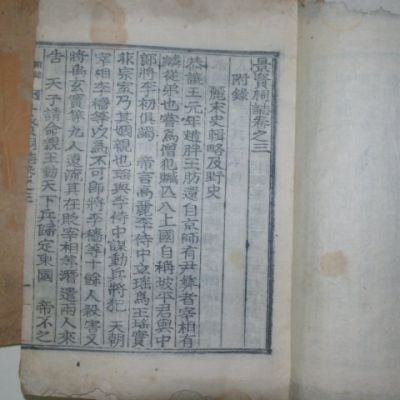 景賢祠誌卷之三
附錄
麗末史輯略及野史
恭讓王元年趙胖王昉還自京師有尹彝者宰相有
麟從弟也嘗爲僧犯贓亡入上國自稱坡平君與中
郞將李初俱謁 帝言高麗李侍中立瑤爲王瑤實
非宗室乃其姻親也瑤與李侍中謀動兵將犯 天朝
宰相李穡等以爲不可卽將李穡等十餘人殺害又
將禹玄寶等九人遠流其在貶宰相等潛遣兩人來
告 天子請命親王動天下兵歸定東國 帝不之